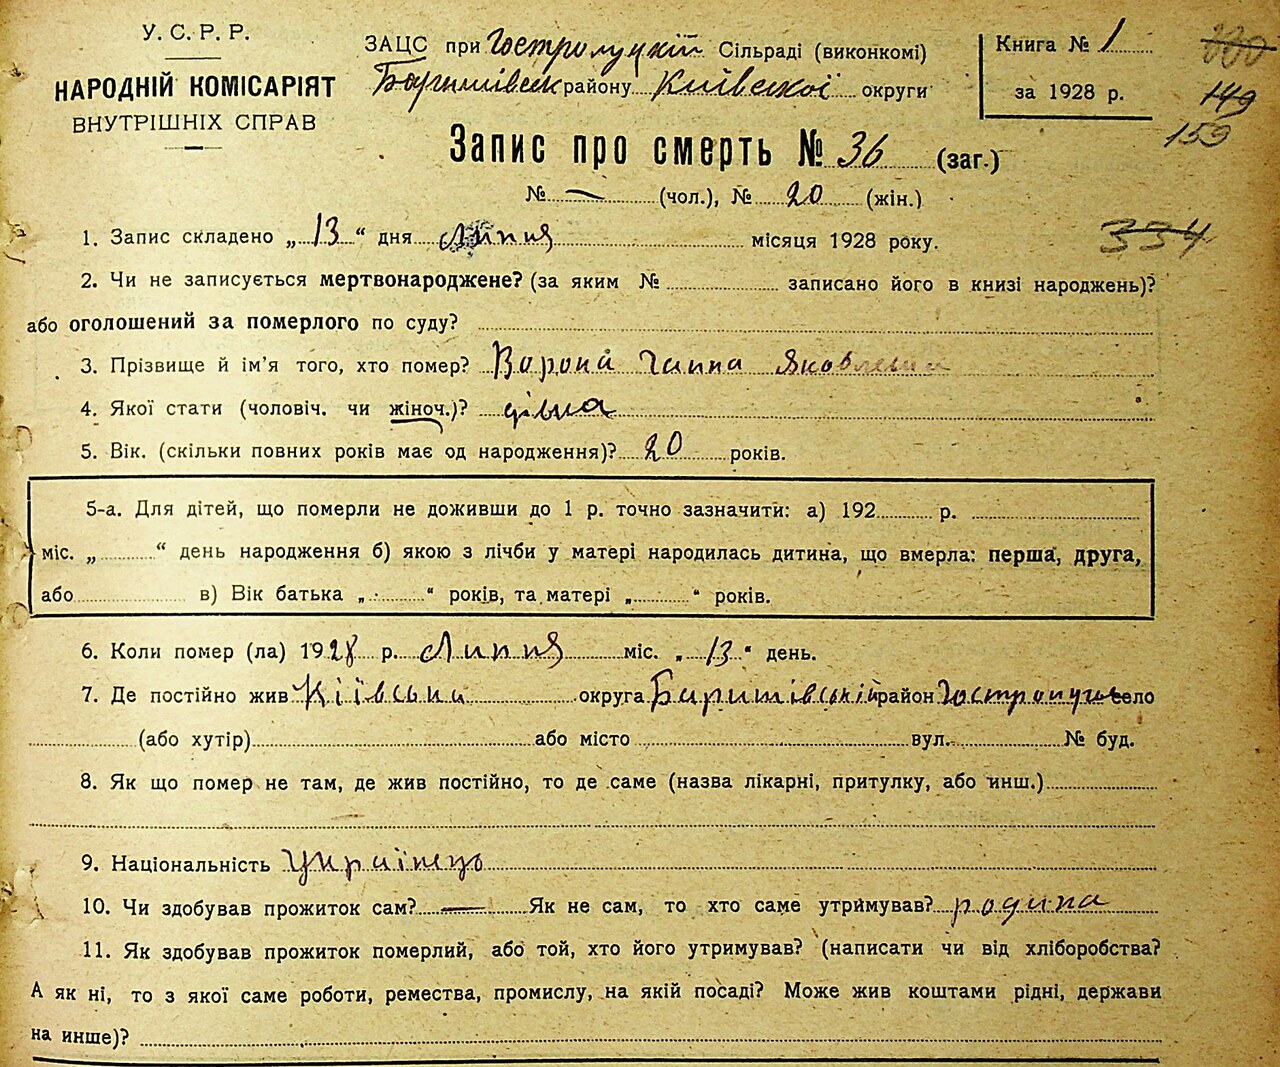 У. С. Р. Р.
НАРОДНІЙ КОМІСАРІЯТ
ВНУТРІШНІХ СПРАВ
ЗАЦС при Гостролуцкій Сільраді (виконкомі)
Баришівськ району Київської округи
Книга № 1
за 1928 р.
330
149
159
Запис про смерть № 36 (заг.)
№ — (чол.), № 20 (жін.)
334
1. Запис складено „ 13 “ дня Липня місяця 1928 року.
2. Чи не записується мертвонароджене? (за яким № записано його в книзі народжень)?
або оголошений за померлого по суду?
3. Прізвище й ім’я того, хто помер? Ворона Ганна Яковлевна
4. Якої стати (чоловіч. чи жіноч.)? дівка
5. Вік. (скільки повних років має од народження)? 20 років.
5-а. Для дітей, що померли не доживши до 1 р. точно зазначити: а) 192 р.
міс. „ “ день народження б) якою з лічби у матері народилась дитина, що вмерла: перша, друга,
або в) Вік батька „ “ років, та матері „ “ років.
6. Коли помер (ла) 1928 р. Липня міс. „ 13 “ день.
7. Де постійно жив Кіївська округа Баришівській район село
(або хутір) або місто вул. № буд.
8. Як що помер не там, де жив постійно, то де саме (назва лікарні, притулку, або инш.)
9. Національність Українець
10. Чи здобував прожиток сам? — Як не сам, то хто саме утримував? родина
11. Як здобував прожиток померлий, або той, хто його утримував? (написати чи від хліборобства?
А як ні, то з якої саме роботи, ремества, промислу, на якій посаді? Може жив коштами рідні, держави
на инше)?